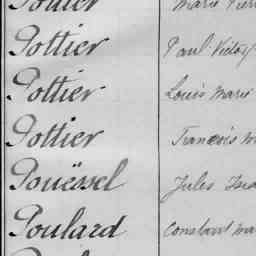 Pottier Paul Victor
Pottier Louis Marie
Pottier François
Pouëssel Jules
Poulard Constant